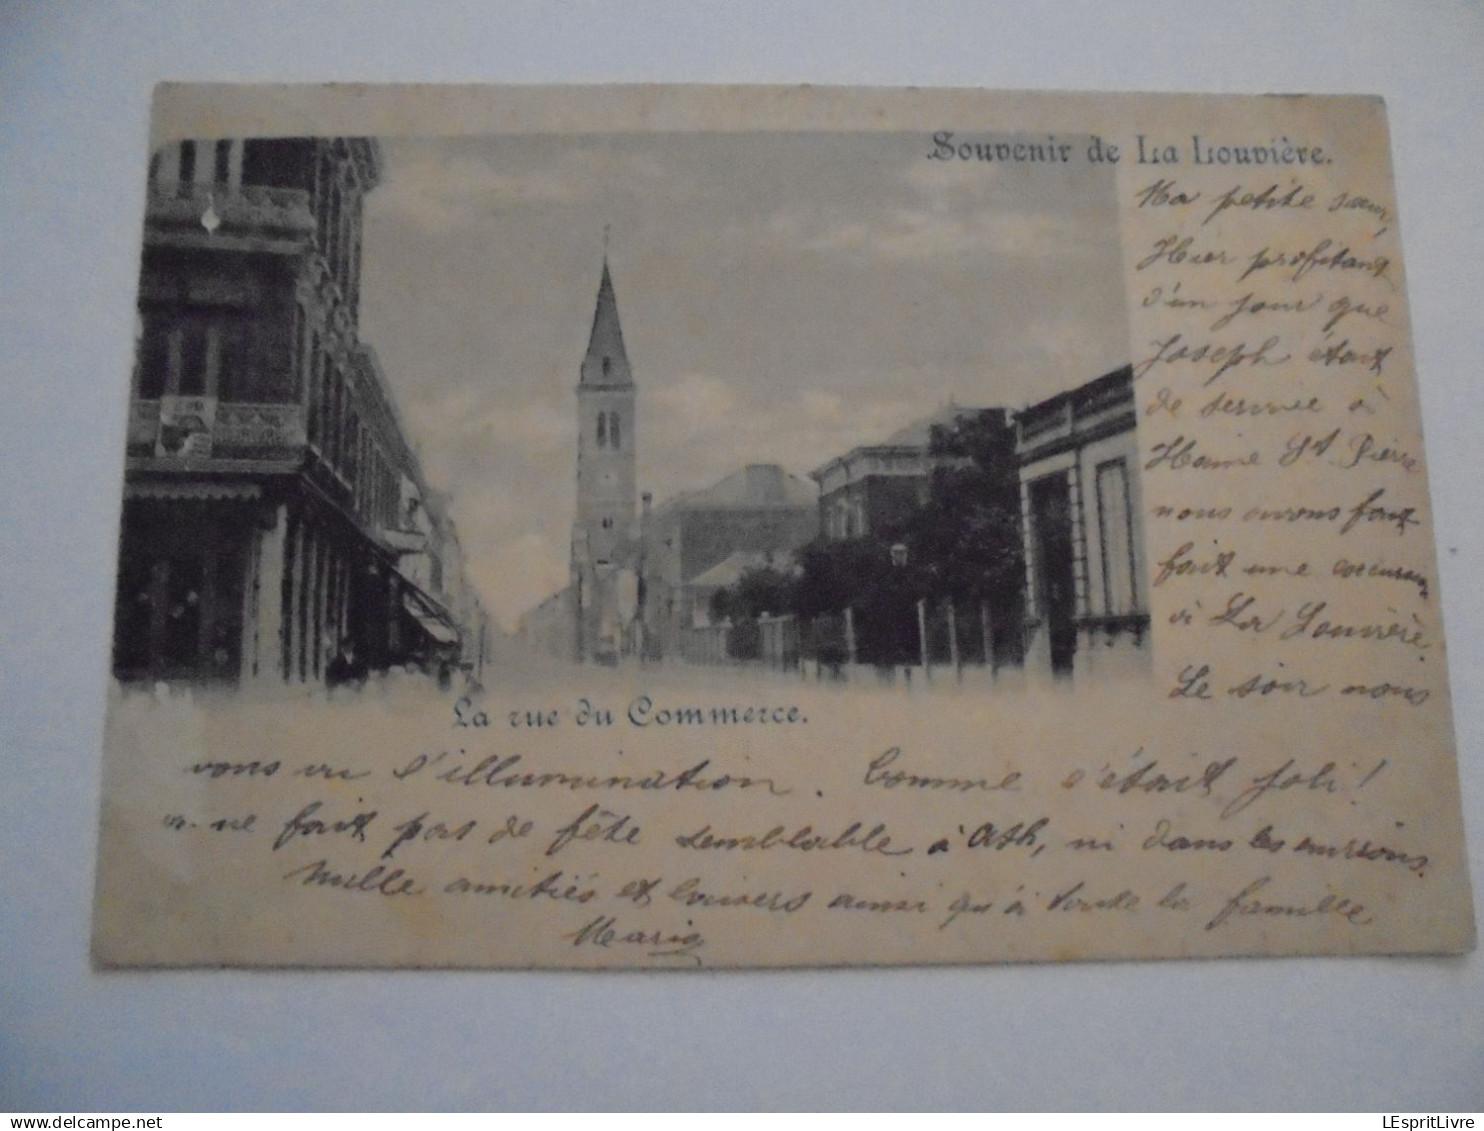 Souvenir de La Louvière.
Ma petite sœur,
Hier profitant
d'un jour que
Joseph étant
de service à
Haine St. Pierre
nous avons fait
fait une excursion
à La Louvière.
Le soir nous
La rue du Commerce.
vons vu l'illumination. Comme c'était joli!
ne fait pas de fête semblable à Ath, ni dans les environs.
Mille amitiés et baisers ainsi qu'à toute la famille
Maria
LEspritLivre